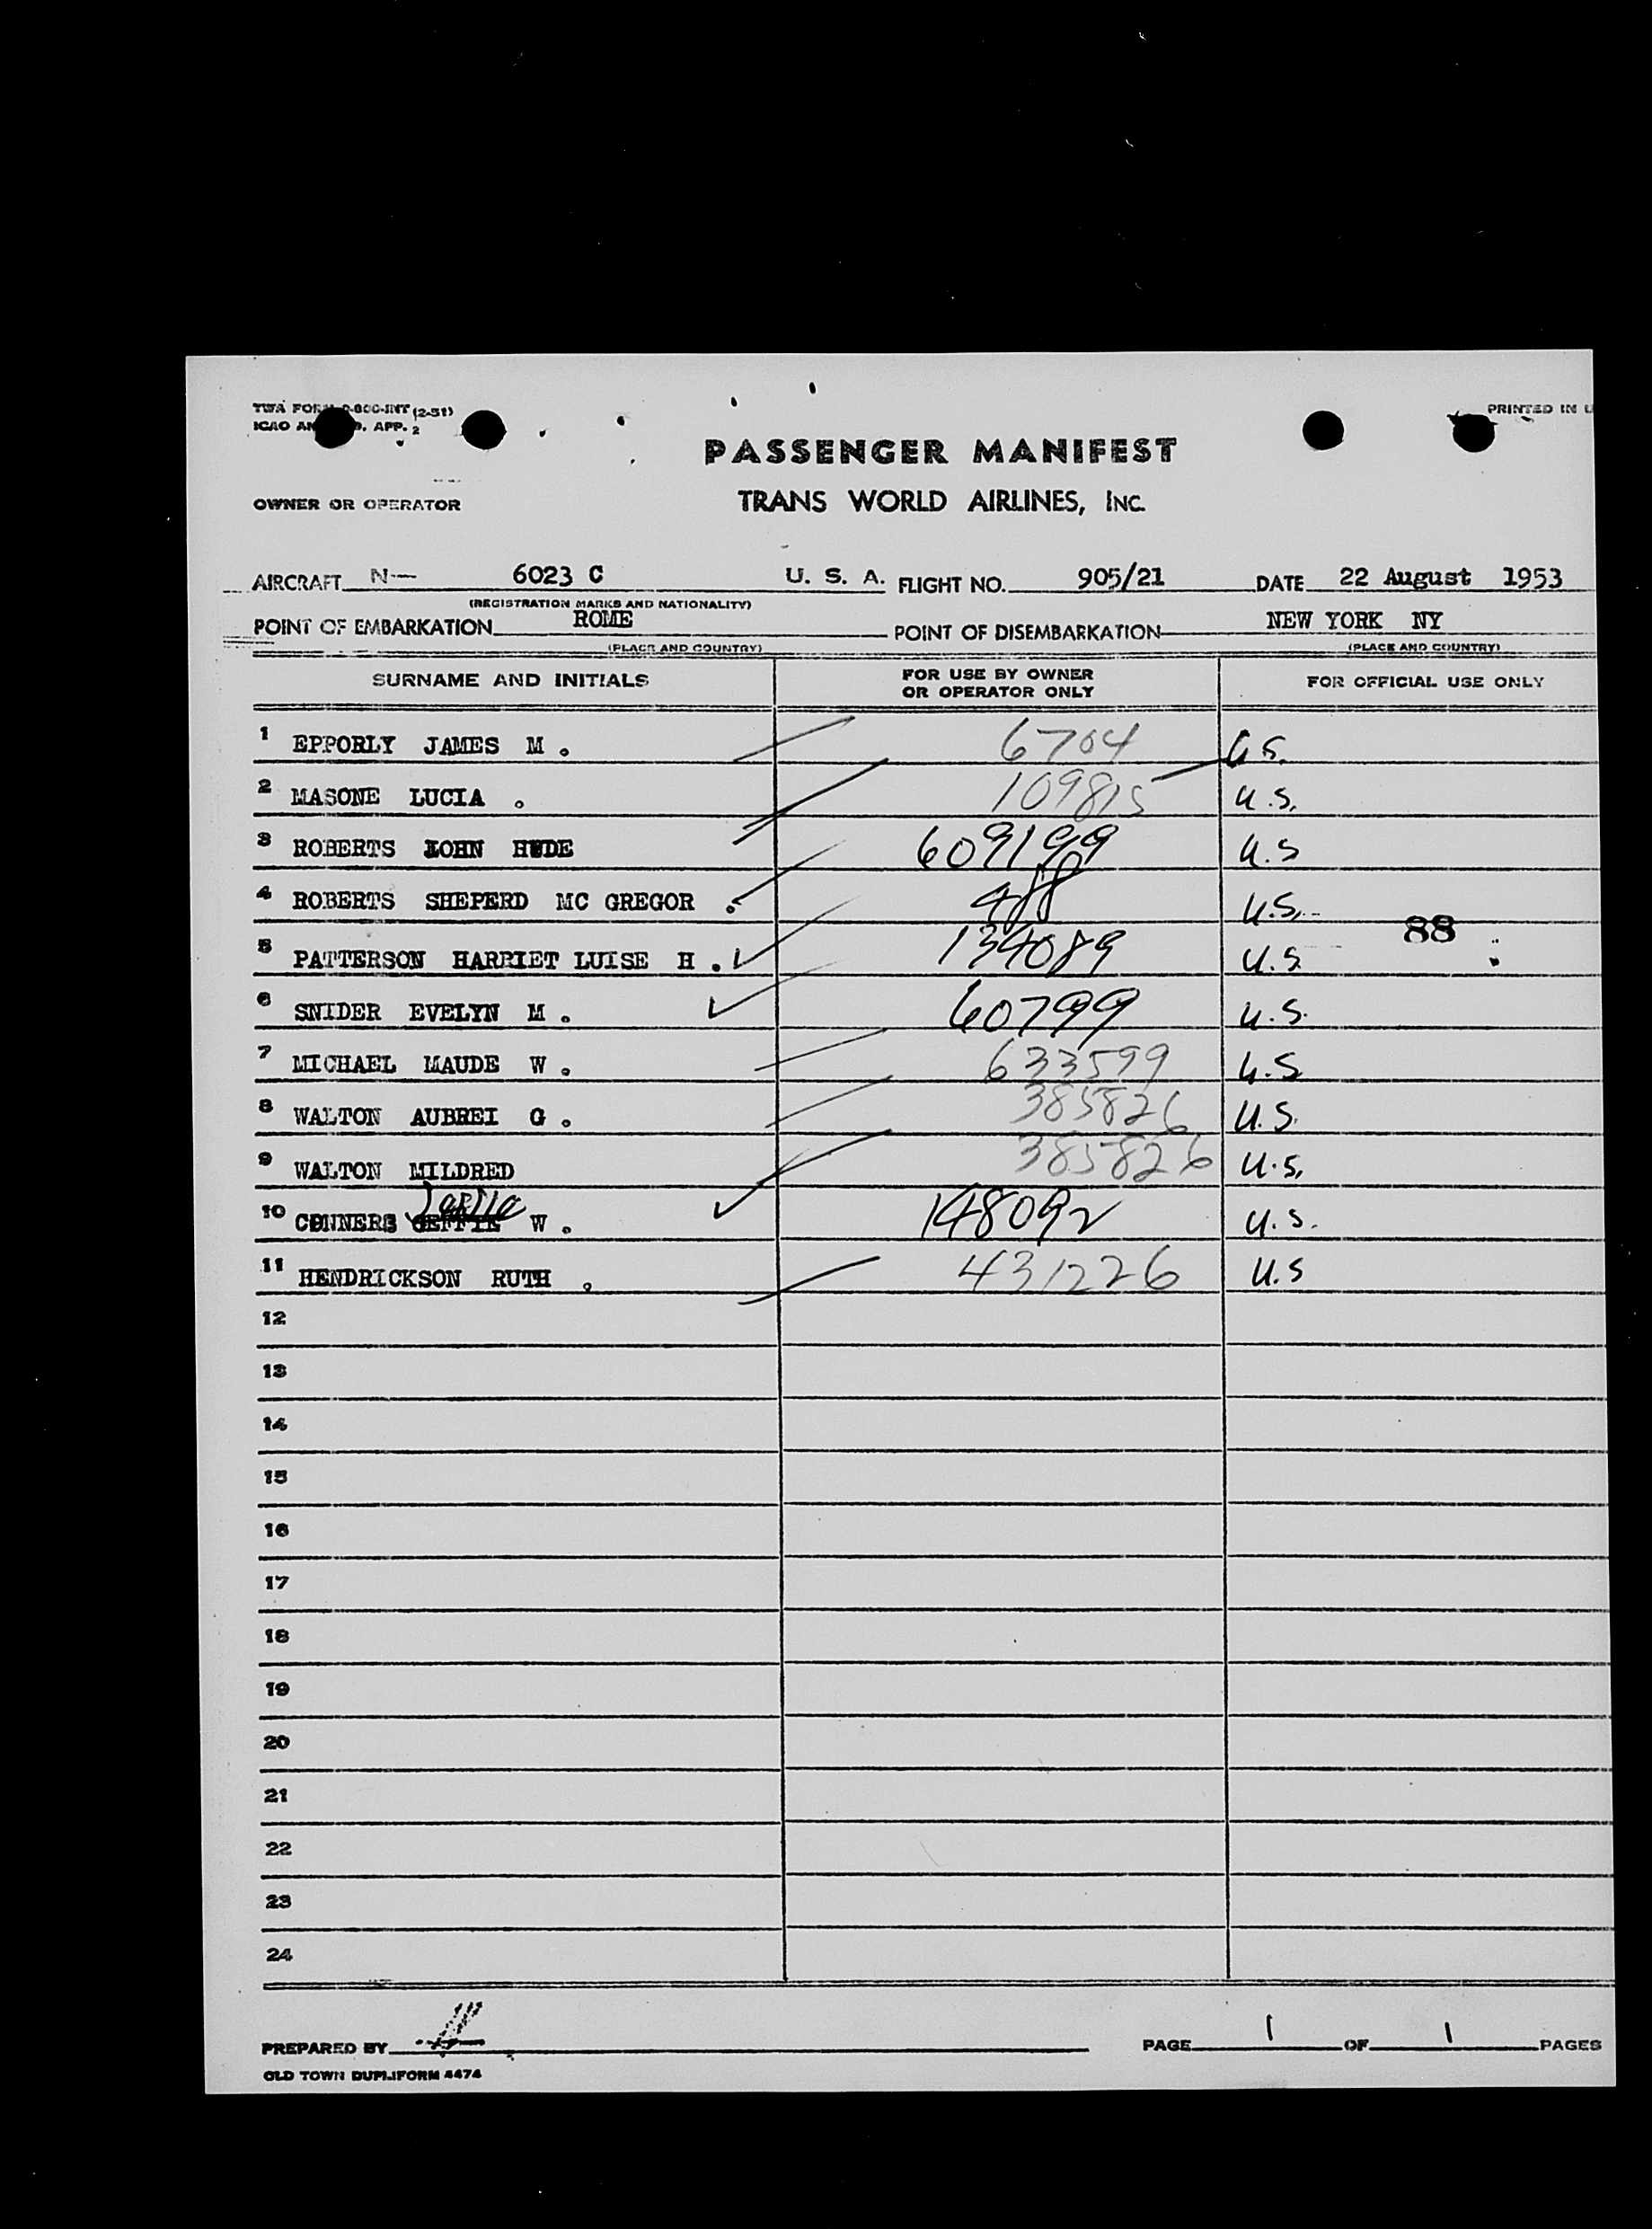 TWA FORM 0-800-INT (2-51)
ICAO AN 9, APP. 2
PRINTED IN U
PASSENGER MANIFEST
OWNER OR OPERATOR TRANS WORLD AIRLINES, INC.
AIRCRAFT N— 6023 C U. S. A. FLIGHT NO. 905/21 DATE 22 August 1953
(REGISTRATION MARKS AND NATIONALITY)
POINT OF EMBARKATION ROME POINT OF DISEMBARKATION NEW YORK NY
(PLACE AND COUNTRY) (PLACE AND COUNTRY)
SURNAME AND INITIALS FOR USE BY OWNER OR OPERATOR ONLY FOR OFFICIAL USE ONLY
1 EPPORLY JAMES M. 6704 U.S.
2 MASONE LUCIA. 109815 U.S.
3 ROBERTS JOHN HYDE 609199 U.S
4 ROBERTS SHEPERD MC GREGOR. 488 U.S.
88
5 PATTERSON HARRIET LUISE H. 134089 U.S
6 SNIDER EVELYN M. 60799 U.S.
7 MICHAEL MAUDE W. 633599 U.S
8 WALTON AUBREI G. 385826 U.S.
9 WALTON MILDRED 385826 U.S.
10 CONNERS W. 148092 U.S.
11 HENDRICKSON RUTH. 431226 U.S
12
13
14
15
16
17
18
19
20
21
22
23
24
PREPARED BY PAGE 1 OF 1 PAGES
OLD TOWN DUPLIFORM 4474